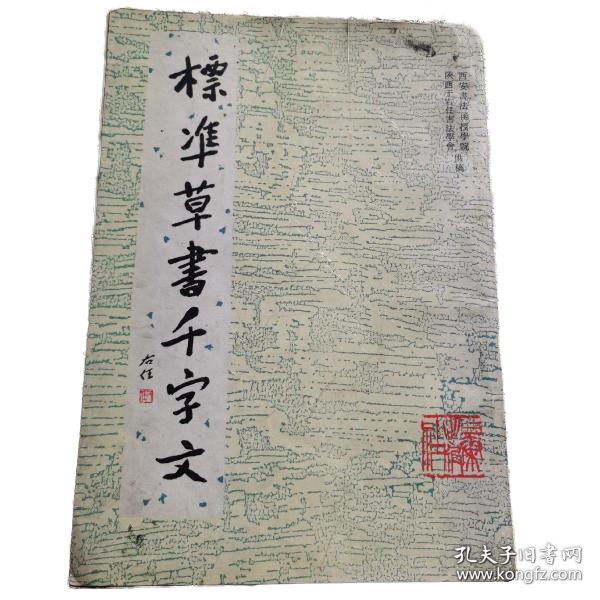 西安書法函授學院
陝西于右任書法學會 供稿
標準草書千字文
右任
孔夫子旧书网
www.kongfz.com